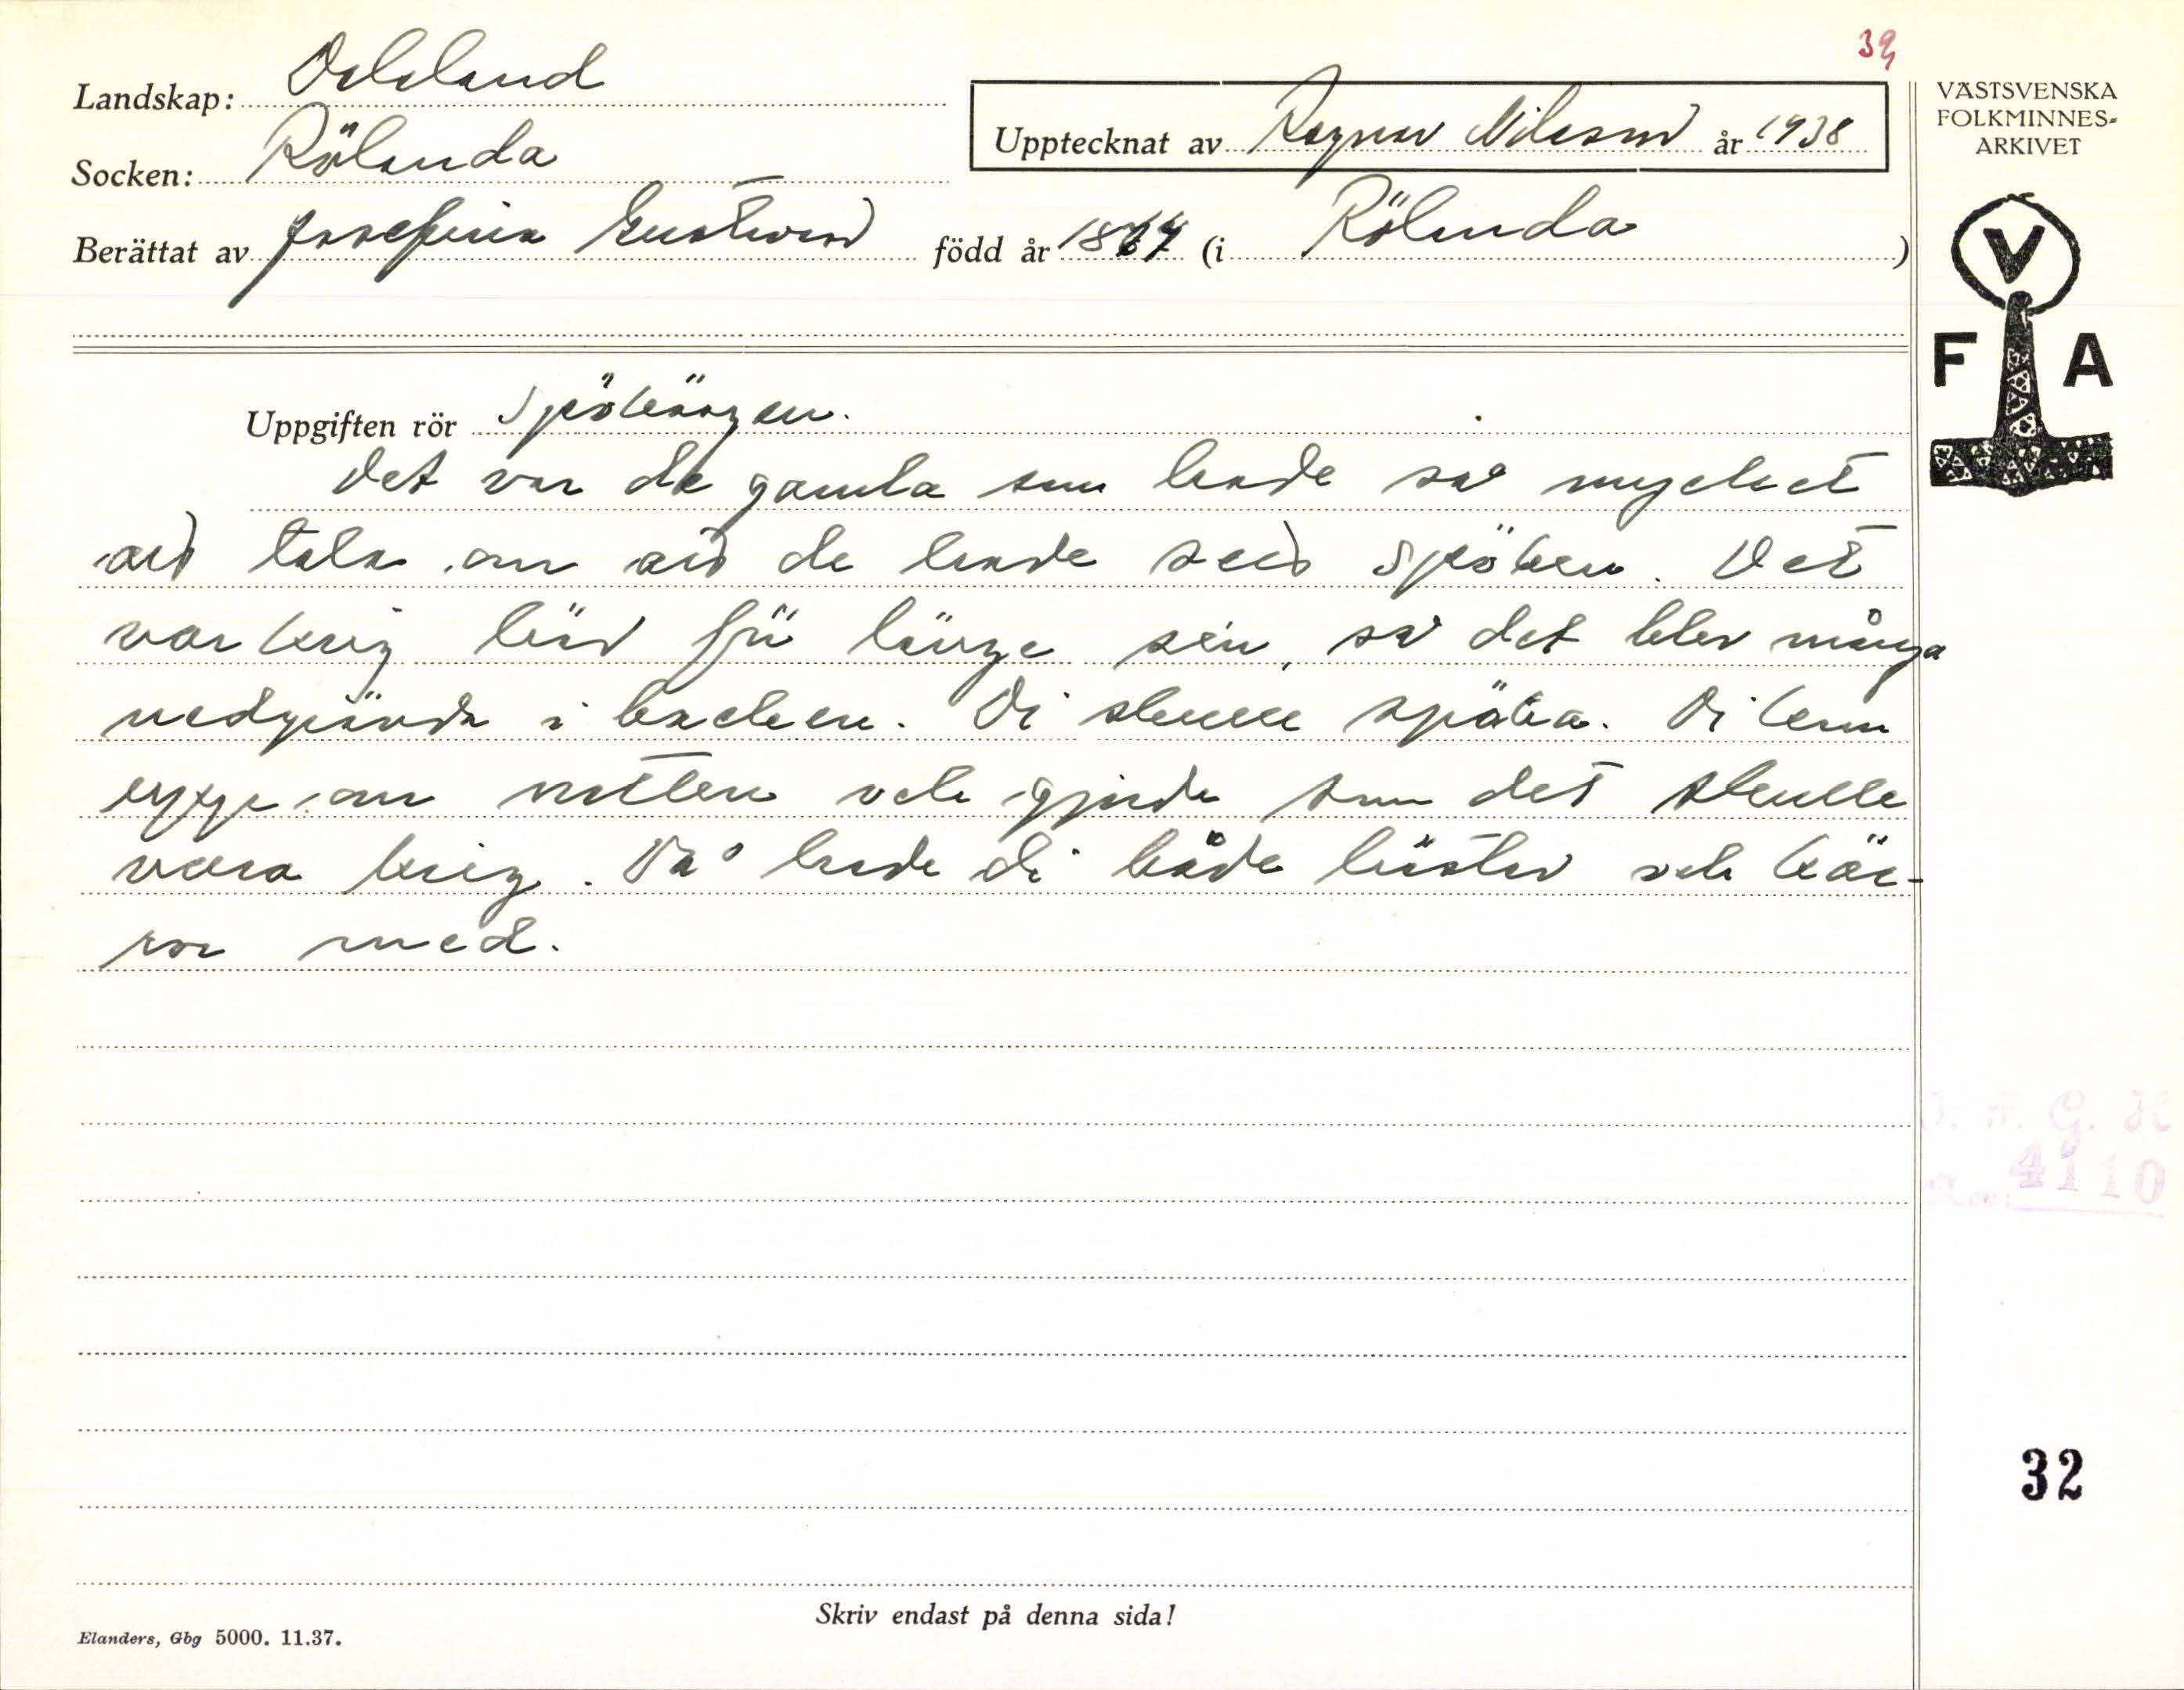 39
Landskap: Dalsland
Upptecknat av Ragnar Nilsson år 1938
VÄSTSVENSKA
FOLKMINNES-
ARKIVET
Socken: Rölanda
Berättat av Josefina Gustavsson född år 1864 (i Rölanda)
V
F A
Uppgiften rör Spökängen.
Det var de gamla som hade så mycket
att tala om att de hade sett spöken. Det
var krig här för länge sen, så det blev många
nedgrävda i backen. Di skulle spöka. Di kom
opp om natten och gjorde som det skulle
vara krig. Då hade di både hästar och kär-
ror med.
4110
32
Skriv endast på denna sida!
Elanders, Gbg 5000. 11.37.